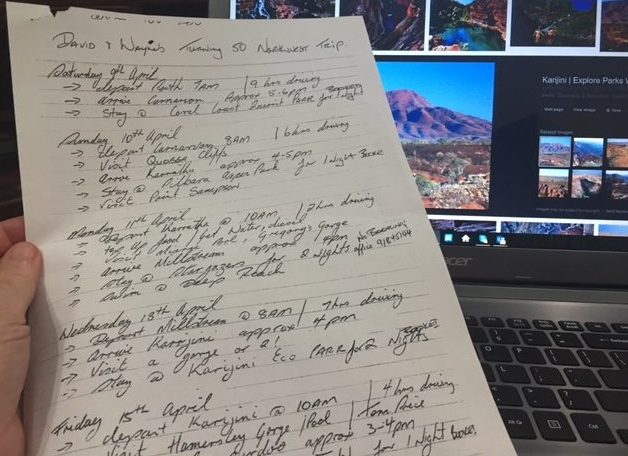 David & Wayne's Turning 50 Northwest Trip.
Saturday 9th April
→ depart Perth 7am / 9 hrs driving
→ arrive Carnarvon approx 5-6pm
→ Stay @ Coral Coast Tourist Park for 1 Night
Sunday 10th April
→ depart Carnarvon 8AM / 6 hrs driving
→ Visit Quobba Cliffs
→ arrive Karratha approx 4-5pm
→ Stay @ Pilbara Aspen Park for 1 Night
→ Visit Point Sampson
Monday 11th April
→ Depart Karratha @ 10AM / 2 hrs driving
→ top up food / get Water, diesel
→ Visit Pool, Gregory's Gorge
→ Arrive Millstream approx 4pm
→ Stay @ Stargazers for 2 Nights. office
→ Swim @ Deep Reach
Wednesday 13th April
→ Depart Millstream @ 8AM / 7 hrs driving
→ Arrive Karijini approx 4pm
→ Visit a gorge or 2!
→ Stay @ Karijini Eco PARK for 2 Nights
Friday 15th April
→ depart Karijini @ 10AM / 4 hrs driving
→ Visit Hamersley Gorge / Pool / Tom Price
approx 3-4pm
for 1 Night
Karijini | Explore Parks W
Visit page
View image
Save
Related images:
acer
Alt Gr
Ctrl